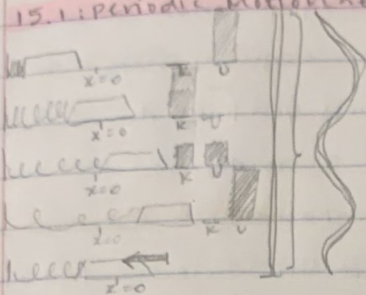 15.1: Periodic Motion
x=0 K U
x=0 K U
x=0 K U
x=0 K U
x=0